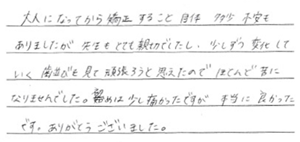 大人になってから矯正すること自体 多少 不安も
ありましたが 先生もとても親切でしたし、少しずつ変化して
いく 歯並びを見て頑張ろうと思えたので ほとんど苦に
なりませんでした。始めは少し痛かったですが 本当に良かった
です。ありがとうございました。